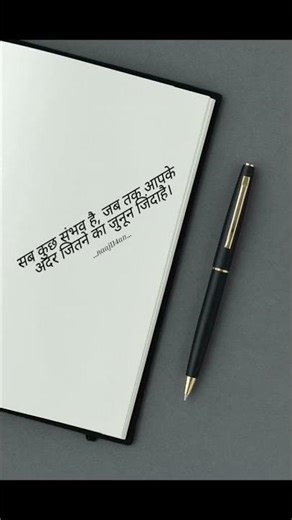 सब कुछ संभव है, जब तक आपके
अंदर जितने का जुनून जिंदाहै।